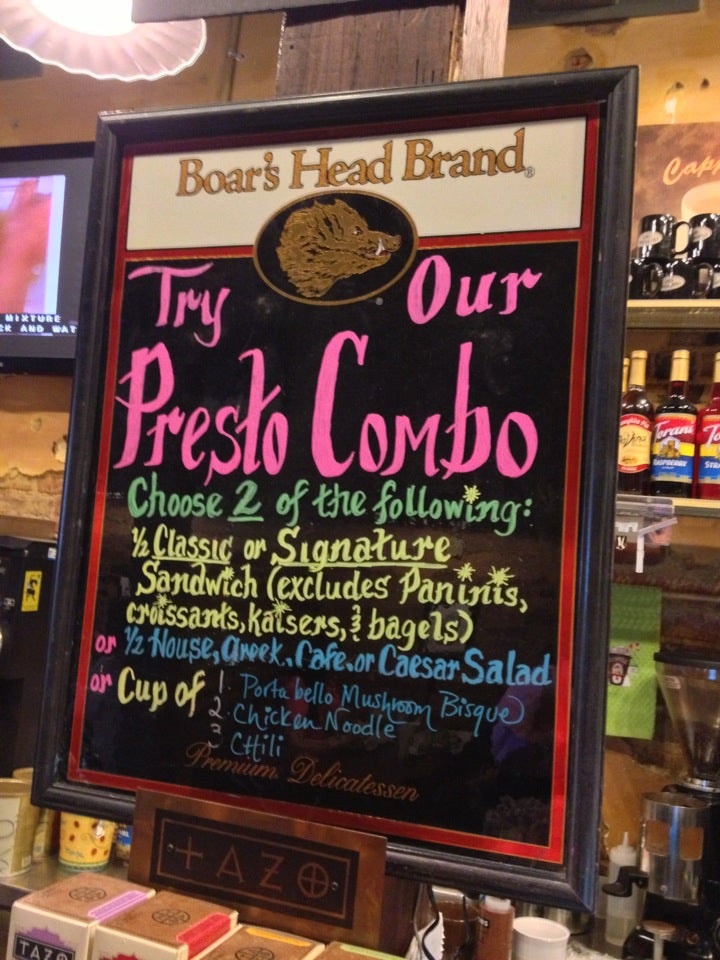 Boar's Head Brand®
Try Our
Presto Combo
Choose 2 of the following:
½ Classic or Signature
Sandwich (excludes Paninis,
croissants, kaisers, & bagels)
or ½ House, Greek, Cafe, or Caesar Salad
or Cup of 1. Portabello Mushroom Bisque
2. Chicken Noodle
3. CHili
Premium Delicatessen
TAZO
TAZO
MIXTURE
CK AND WAT
Capp
Torani
RASPBERRY
STRA